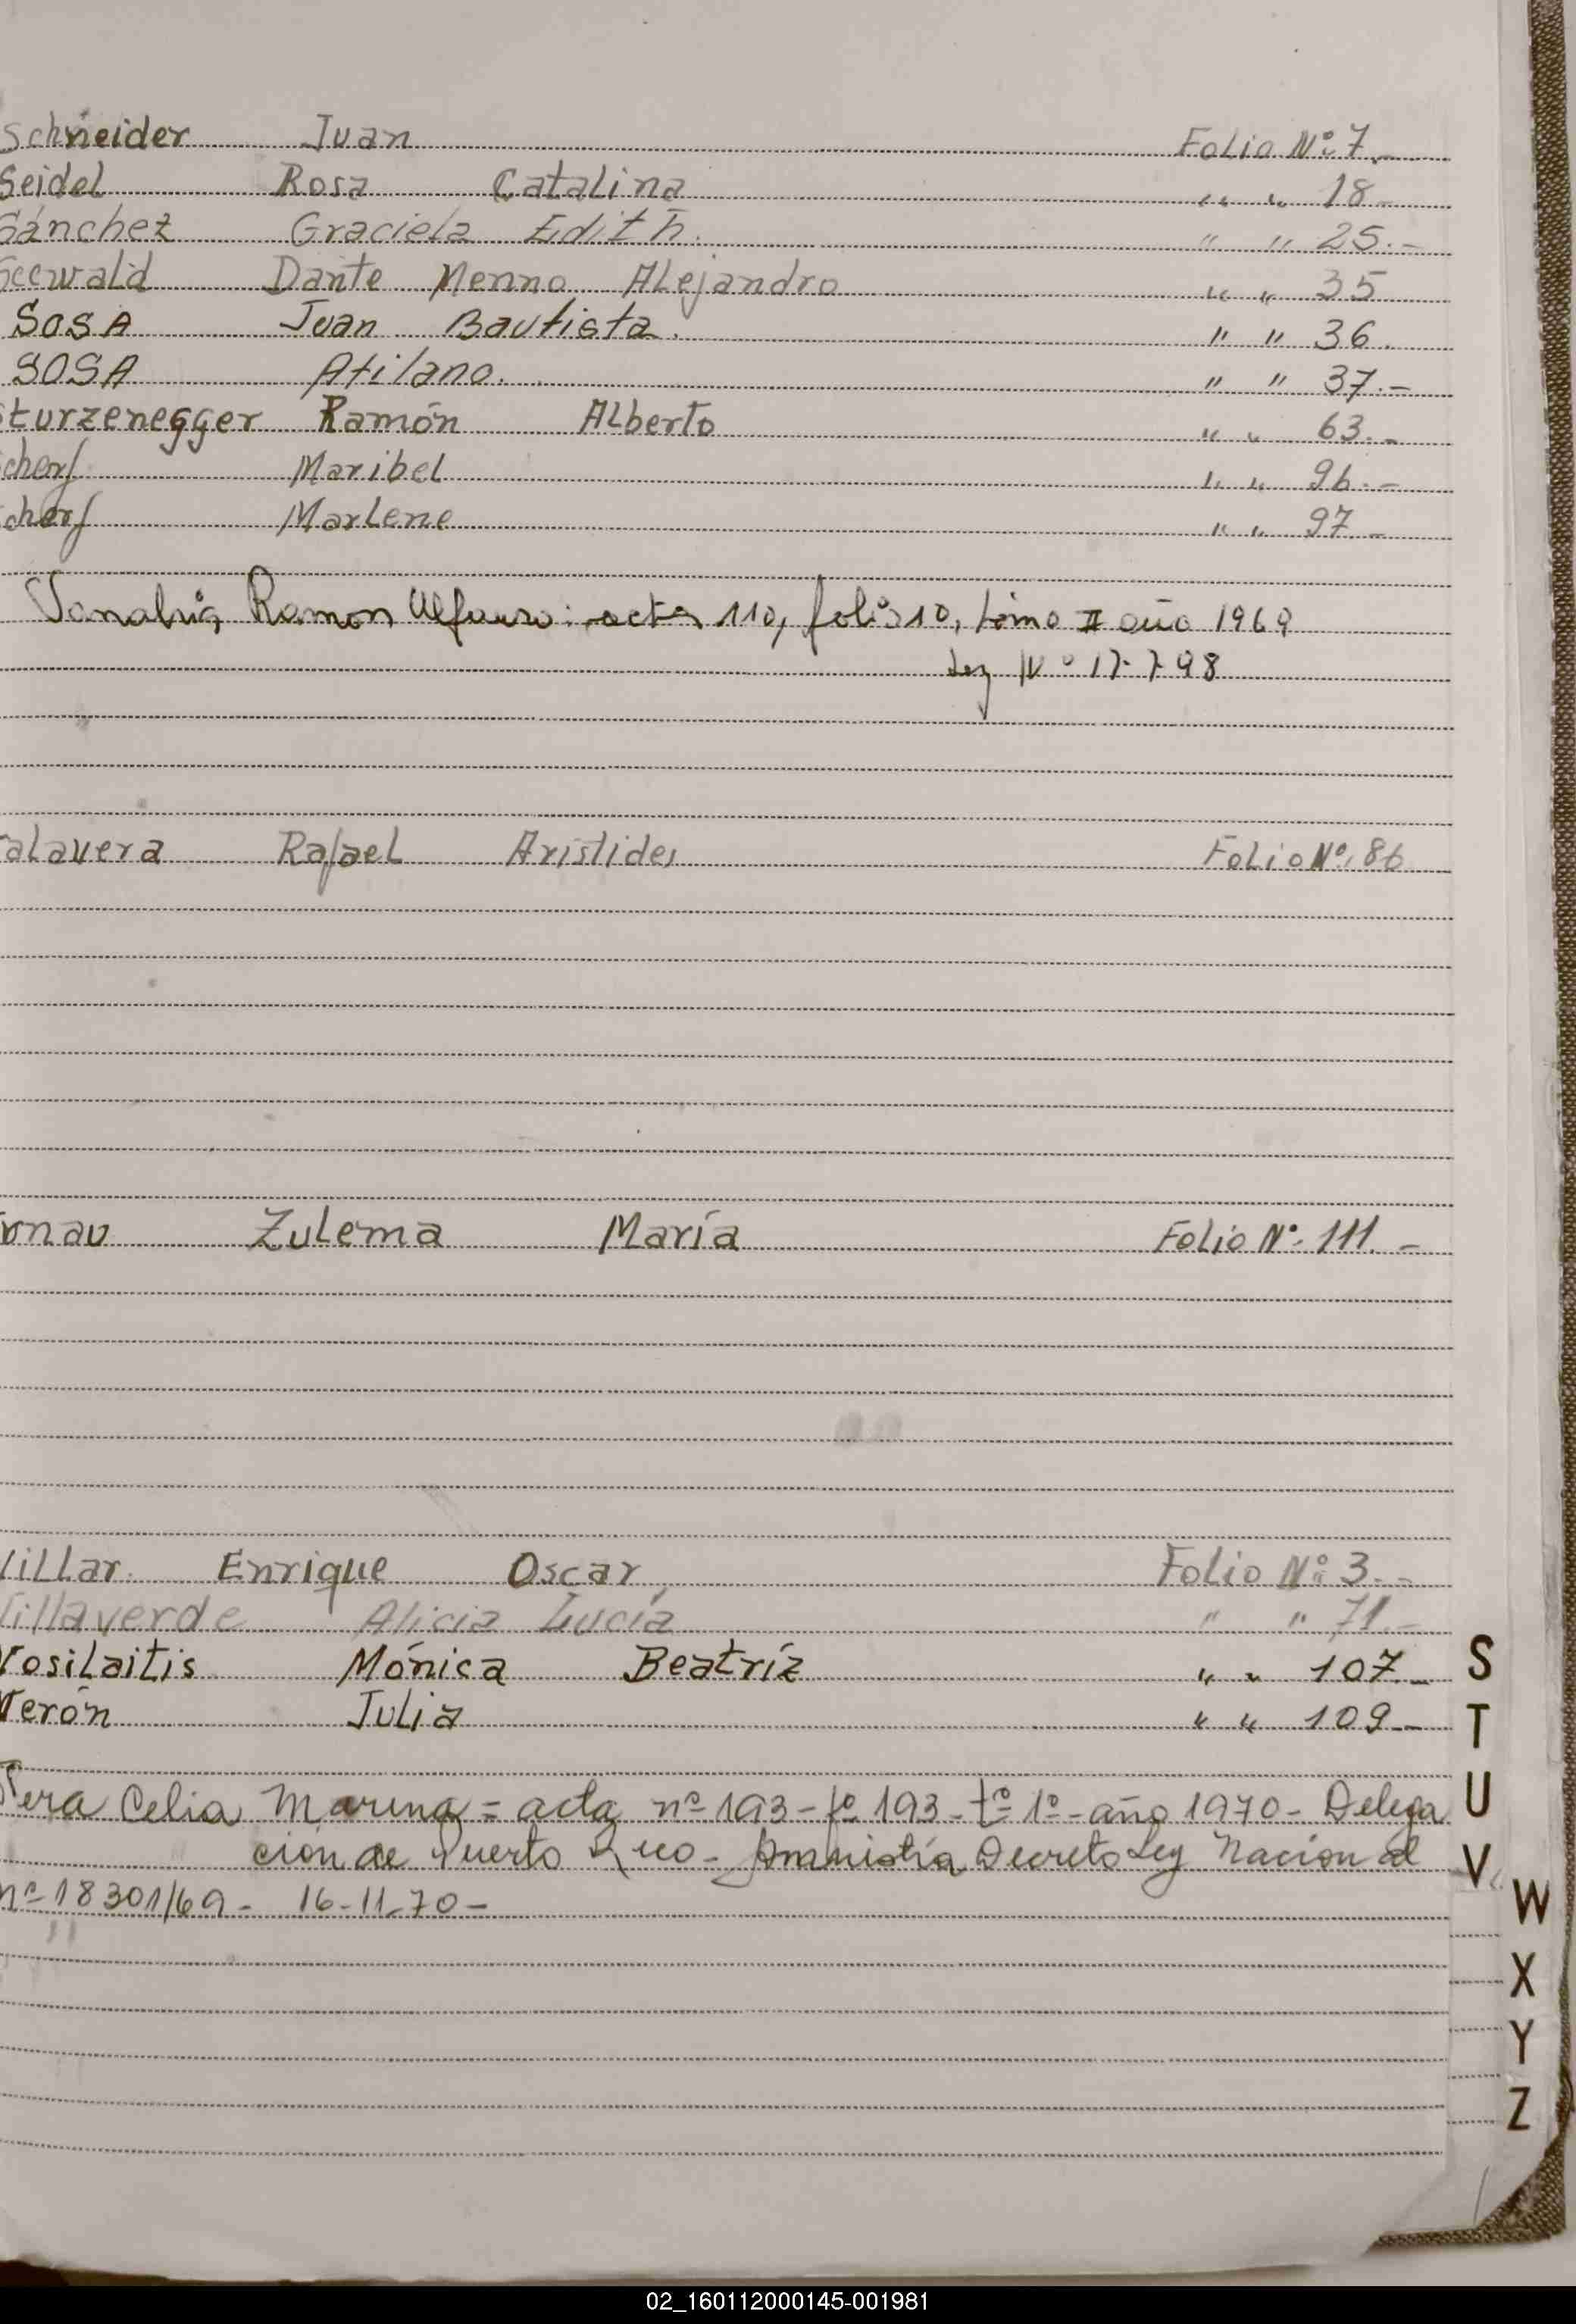 Schneider Juan Folio Nº 7.-
Seidel Rosa Catalina " " 18-
Sánchez Graciela Edith. " " 25.-
Seewald Dante Menno ALejandro " " 35
SOSA Juan Bautista. " " 36.
SOSA Atilano. " " 37.-
Sturzenegger Ramón ALberto " " 63.-
cherf Maribel " " 96.-
cherf MarLene " " 97.-
Ramon acta 110, folio 10, tomo II año 1969
Ley Nº 17.798
aLavera RafaeL Aristides FoLio Nº 86
rnau ZuLema María FoLio Nº 111.-
ViLLar. Enrique Oscar Folio Nº 3.-
Villaverde Alicia Lucía " " 71.-
VosiLaitis Mónica Beatríz " " 107.-
Verón Julia " " 109-
Vera Celia Marina = acta nº 193 - fº 193 - tº 1º - año 1970 - Delega
ción de Puerto Rico - Amnistía Decreto Ley Nacional
nº 18301/69 - 16-11-70 -
S
T
U
V
W
X
Y
Z
02_160112000145-001981